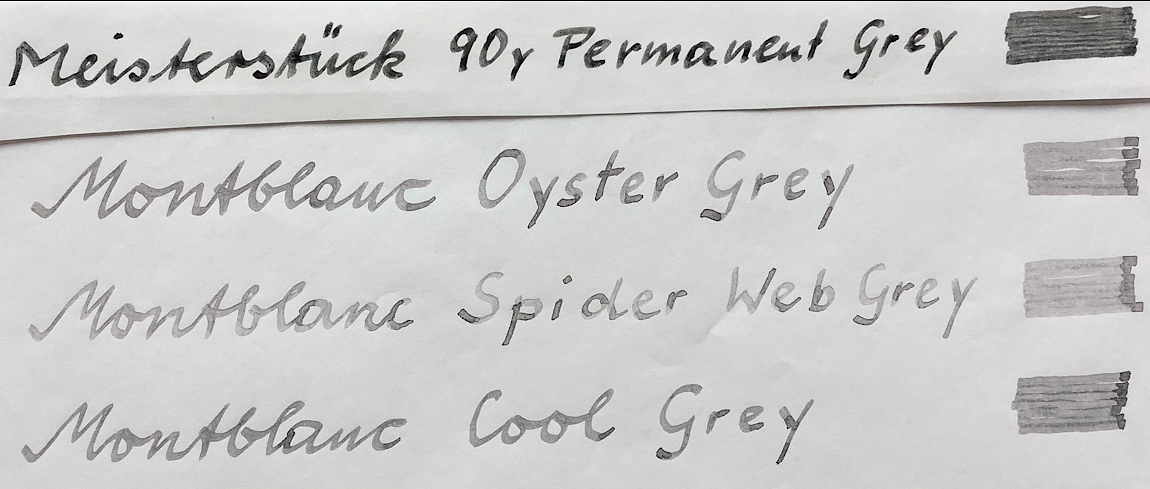 Meisterstück 90y Permanent Grey
Montblanc Oyster Grey
Montblanc Spider Web Grey
Montblanc Cool Grey